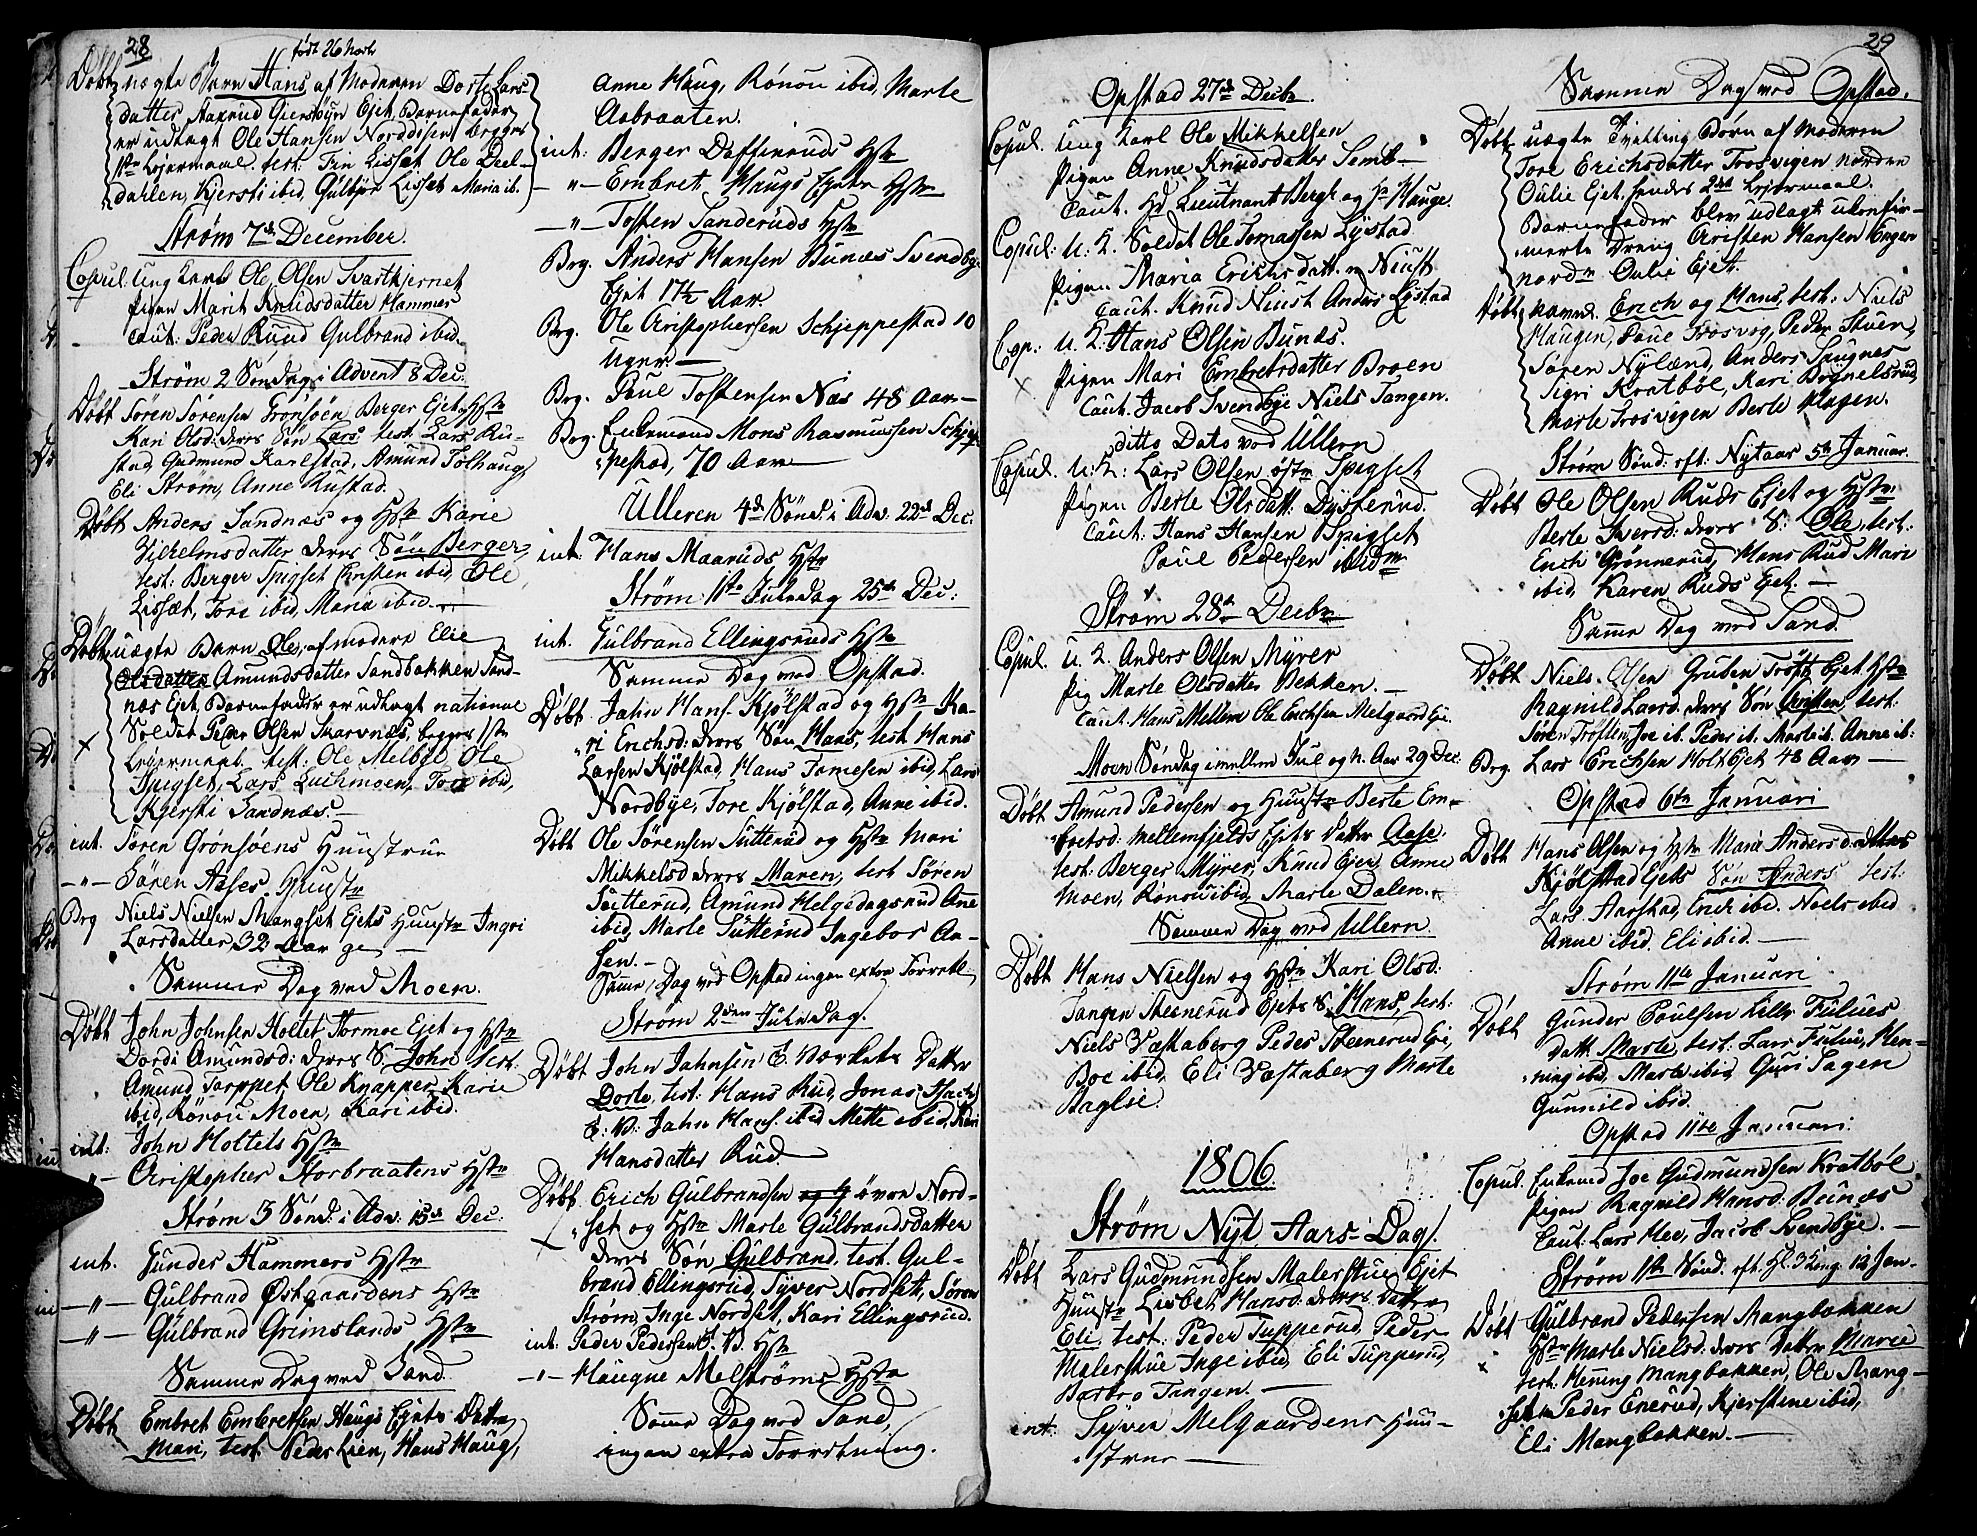 28
født 26 Novbr
Døbt uægte Barn Hans af Moderen Dorte Lars-
datter Aaxrud Ejet, Barnefader
er udlagt Ole Hansen begges
1ste Lejermaal. test. Lisset, Ole Deel-
dahlen, Kjersti ibid, Gulbjør Lisset Maria ib.
Strøm 7de December.
Copul. Ung Karl Ole Olsen Svartkjernet
Pigen Marit Knudsdatter Hammer
Caut: Peder Ruud Gulbrand ibid.
Strøm 2 Søndag i Advent 8 Dec:
Døbt Søren Sørensen Grønsöen Berger Ejet og Hstr
Kari Olsd: deres Søn Lars test. Lars Ru-
stad, Gudmund Karlstad, Amund Tolhaug
Eli Strøm, Anne Rustad.
Døbt Anders Sandnæs og Hstr Karie
Vilhelmsdatter deres Søn Berger,
test: Berger Spigset Christen ibid Ole
Lissæt, Tore ibid, Maria ibid.
Døbt uægte Barn Ole, af modere Elie
Olsdatter Amundsdatter Sandbakken Sand-
næs Ejet, Barnefader er udlagt national
Soldat Peder Olsen Skarvnæs, begges 1ste
Lejermaal. test: Ole Melbøl, Ole
Spigset, Lars Luchmoen, Tore ibid,
Kjersti Sandnæs.
int. Søren Grønsöens Huustrue
—"— Søren Aases Huustr
Brg Niels Nielsen Mangset Ejets Huustr Ingri
Larsdatter 32 Aar
Samme Dag ved Moen.
Døbt John Johnsen Holtet Stormoe Ejet og Hstr
Dordi Amundsd: deres S. John test.
Amund Tarppet Ole Knapper, Karie
ibid, Rønou Moen, Kari ibid.
int: John Holtets Hstr
"— Christopher Storbraatens Hstr
Strøm 3 Sønd: i Adv: 15de Dec:
int. Gunder Hammers Hstr
—"— Gulbrand Østgaardens Hstr
—"— Gulbrand Grimslands Hstr
Samme Dag ved Sand.
Døbt Embret Embretsen Haugs Ejets Datter
Mari, test Peder Lien, Hans Haug,
Anne Haug, Rønou ibid, Marte
Aabraaten.
int: Berger Dofferuds Hstr
—"— Embret Haugs Ejets Hstr
—"— Tosten Sanderuds Hstr
Brg. Anders Hansen Bunæs Svendby
Ejet 17½ Aar.
Brg. Ole Christophersen Schjeppestad 10
Uger.
Brg. Poul Tostensen Næs 48 Aar
Brg. Enkemand Mons Rasmussen Schjep-
pestad, 70 Aar
Ulleren 4de Sønd: i Adv: 22de Dec:
int: Hans Maaruds Hstr
Strøm 1ste Juledag 25de Dec:
int. Gulbrand Ellingsruds Hstr
Samme Dag ved Opstad.
Døbt Jahn Hans. Kjølstad og Hstr Ka-
ri Erichsd: deres Søn Hans, test Hans
Larsen Kjølstad, Hans Tomesen ibid, Lars
Nordbye, Tore Kjølstad, Anne ibid.
Døbt Ole Sørensen Sutterud og Hstr Mari
Mikkelsd deres Maren, test Søren
Sutterud, Amund Helgedagsrud Ane
ibid, Marte Sutterud Ingebor Aa-
sen.
Samme Dag ved Opstad ingen extra Forretn.
Strøm 2den Juledag.
Døbt John Jahnsen E. Værkets Datter
Dorte, test: Hans Rud, Jonas Isach
E: V: Jahn Hans. ibid Mette ibid, Kari
Hansdatter Rud.
Døbt Erich Gulbrandsen og H øvre Nord-
set og Hstr Marte Gulbrandsdatter
deres Søn Gulbrand. test. Gul-
brand Ellingsrud, Syver Nordset, Søren
Strøm, Inge Nordset, Kari Ellingsrud.
int: Peder Pedersen E. V. Hstr
—"— Haugne Melstrøms Hstr
Samme Dag ved Sand,
ingen extra Forretning.
29
Opstad 27de Decbr.
Copul. Ung Karl Ole Mikkelsen
Pigen Anne Knudsdatter Semb
Caut. Hr Lieutnant Bergh og Hauge.
Copul: U. K. Soldat Ole Tomassen Lystad
Pigen Maria Erichsdatt. Niust
Caut. Knud Niust Anders Lystad
Cop: U. K. Hans Olsen Bunæs.
Pigen Mari Embretsdatter Broen
Caut. Jacob Svendbye Niels Tangen.
ditto Dato ved Ullern
Copul. U. K: Lars Olsen østr Spigset
Pigen Berte Olsdatt. Dysterud.
Caut. Hans Hansen Spigset
Poul Pedersen ibidm
Strøm 28de Decbr
Copul. U. K. Anders Olsen Myrer
Pig Marte Olsdatter Bekken.
Caut. Hans Mellem Ole Erichsen Melgaard Eje.
Moen Søndag imellem Jul og n. Aar 29 Dec.
Døbt Amund Pedersen og Huustr Berte Em-
bretsd. Mellemfjelds Ejets Datter Aase.
test. Berger Myrer, Knud Ejer, Anne
Moen, Rønou ibid, Marte Dalen.
Samme Dag ved Ullern.
Døbt Hans Nielsen og Hstr Kari Olsd.
Tangen Steenerud Ejets S. Hans, test.
Niels Vestaberg Peder Steenerud Eje,
Boe ibid, Eli Vestaberg Marte
Baglie.
1806.
Strøm Nyt Aars Dag.
Døbt Lars Gudmundsen Malerstue Ejet
Huustr Lisbet Hansd. deres Datter
Eli, test: Peder Tupperud, Peder
Malerstue Inge ibid, Eli Tupperud,
Barbro Tangen.
int. Syver Melgaardens Huu-
strue
Samme Dag ved Opstad.
Døbt uægte Tvetling Børn af Moderen
Tore Erichsdatter Trosvigen norden
Oulie Ejet, hendes 2det Lejermaal.
Barnefader blev udlagt ukonfir-
merte Dreng Christen Hansen Enger
nordr Oulie Ejet.
Døbt navnl. Erich og Hans, test. Niels
Haugen, Poul Trosvig, Peder Stuen,
Søren Nylænd, Anders Spignes
Sigri Kratbøl, Kari Brynelsrud
Marte Trosvigen Berte Hagen.
Strøm Sønd: eft: Nytaar 5te Januar.
Døbt Ole Olsen Ruds Ejet og Hstr
Berte Iversd: deres S: Ole, test:
Erich Grønnerud, Hans Rud Mari
ibid, Karen Ruds Ejet.
Samme Dag ved Sand.
Døbt Niels Olsen Gruben Trøften Ejet Hstr
Ragnild Larsd: deres Søn Christen, test:
Søren Trøften, Joe ib. Peder ib. Marte ib. Anne ib:
Brg. Lars Erichsen Holt Ejet 48 Aar
Opstad 6te Januari
Døbt Hans Olsen og Hstr Maria Andersd: deres
Kjølstad Ejets Søn Anders test:
Lars Aarstad, Erich ibid. Noels ibid
Anne ibid. Eli ibid.
Strøm 11te Januari
Døbt Gunder Poulsen Lille Fulues
Datt. Marte, test. Lars Fulue, Hen-
ning ibid, Marte ibid, Guri Sagen
Gunnild ibid.
Opstad 11te Januari.
Copul. Enkemd Joe Gudmundsen Kratbøl
Pigen Ragnild Hansd. Bunæs
Caut. Lars Moe, Jacob Svendbye.
Strøm 1ste Sønd. eft. Hl. 3 Kong. 12 Jan.
Døbt Gulbrand Pedersen Mangbakken
Hstr Marte Nielsd. deres Datter Marie
test. Henning Mangbakken, Ole Mang-
set Peder Enerud, Kjerstine ibid,
Eli Mangbakken.